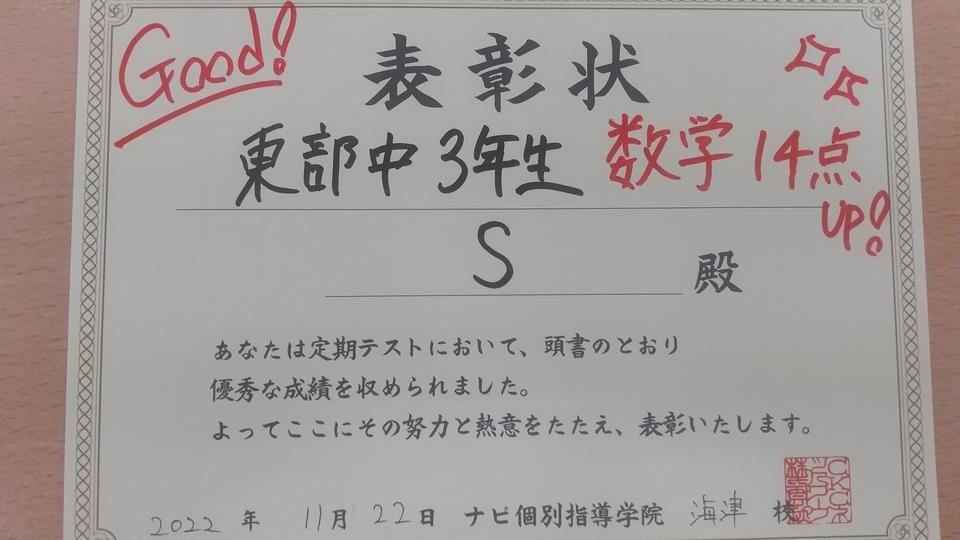 Good!
表彰状
東部中3年生 数学 14点
UP!
S 殿
あなたは定期テストにおいて、頭書のとおり
優秀な成績を収められました。
よってここにその努力と熱意をたたえ、表彰いたします。
2022 年 11月 22日 ナビ個別指導学院 海津 校